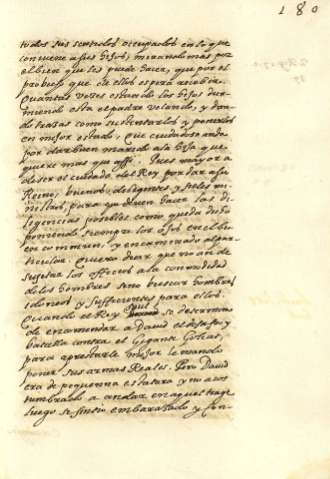 180
todos sus sentidos ocupados en lo que
conviene a sus hijos, mirando mas por
el bien que les puede hacer, que por el
provecho que de ellos espera recebir.
Quantas vezes estando los hijos dur-
miendo esta el padre velando, y dan-
do trazas como sustentarlos y ponerlos
en mejor estado, Que cuidadoso anda
por dar buen marido a la hija que
quiere mas que assi. Pues mayor a
de ser el cuidado del Rey por dar a su
Reino, buenos, diligentes y fieles mi-
nistros, para que hacer las di-
ligencias posibles como queda dicho
poniendo siempre los ojos en el bi-
en commun, y encaminado al par-
ticular. Quiero decir que no an de
sujetar los officios a la commodidad
de los hombres sino buscar hombres
idoneos y sufficientes para ellos.
Quando el Rey Saul se determino
de encomendar a David el desafio y
batalla contra el Gigante Golias,
para aprestarle mejor le mando
poner sus armas Reales. Pero David
era de pequenna estatura y no acos
tumbrado a andar en aquel trage
luego se sintio embarazado y con-